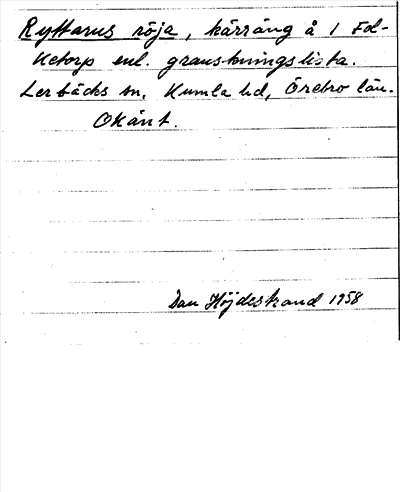 Ryttarus röja, kärräng å 1 Fol-
ketorp enl. granskningslista.
Lerbäcks sn, Kumla hd, Örebro län.
Okänt.
Dan Höjdestrand 1958